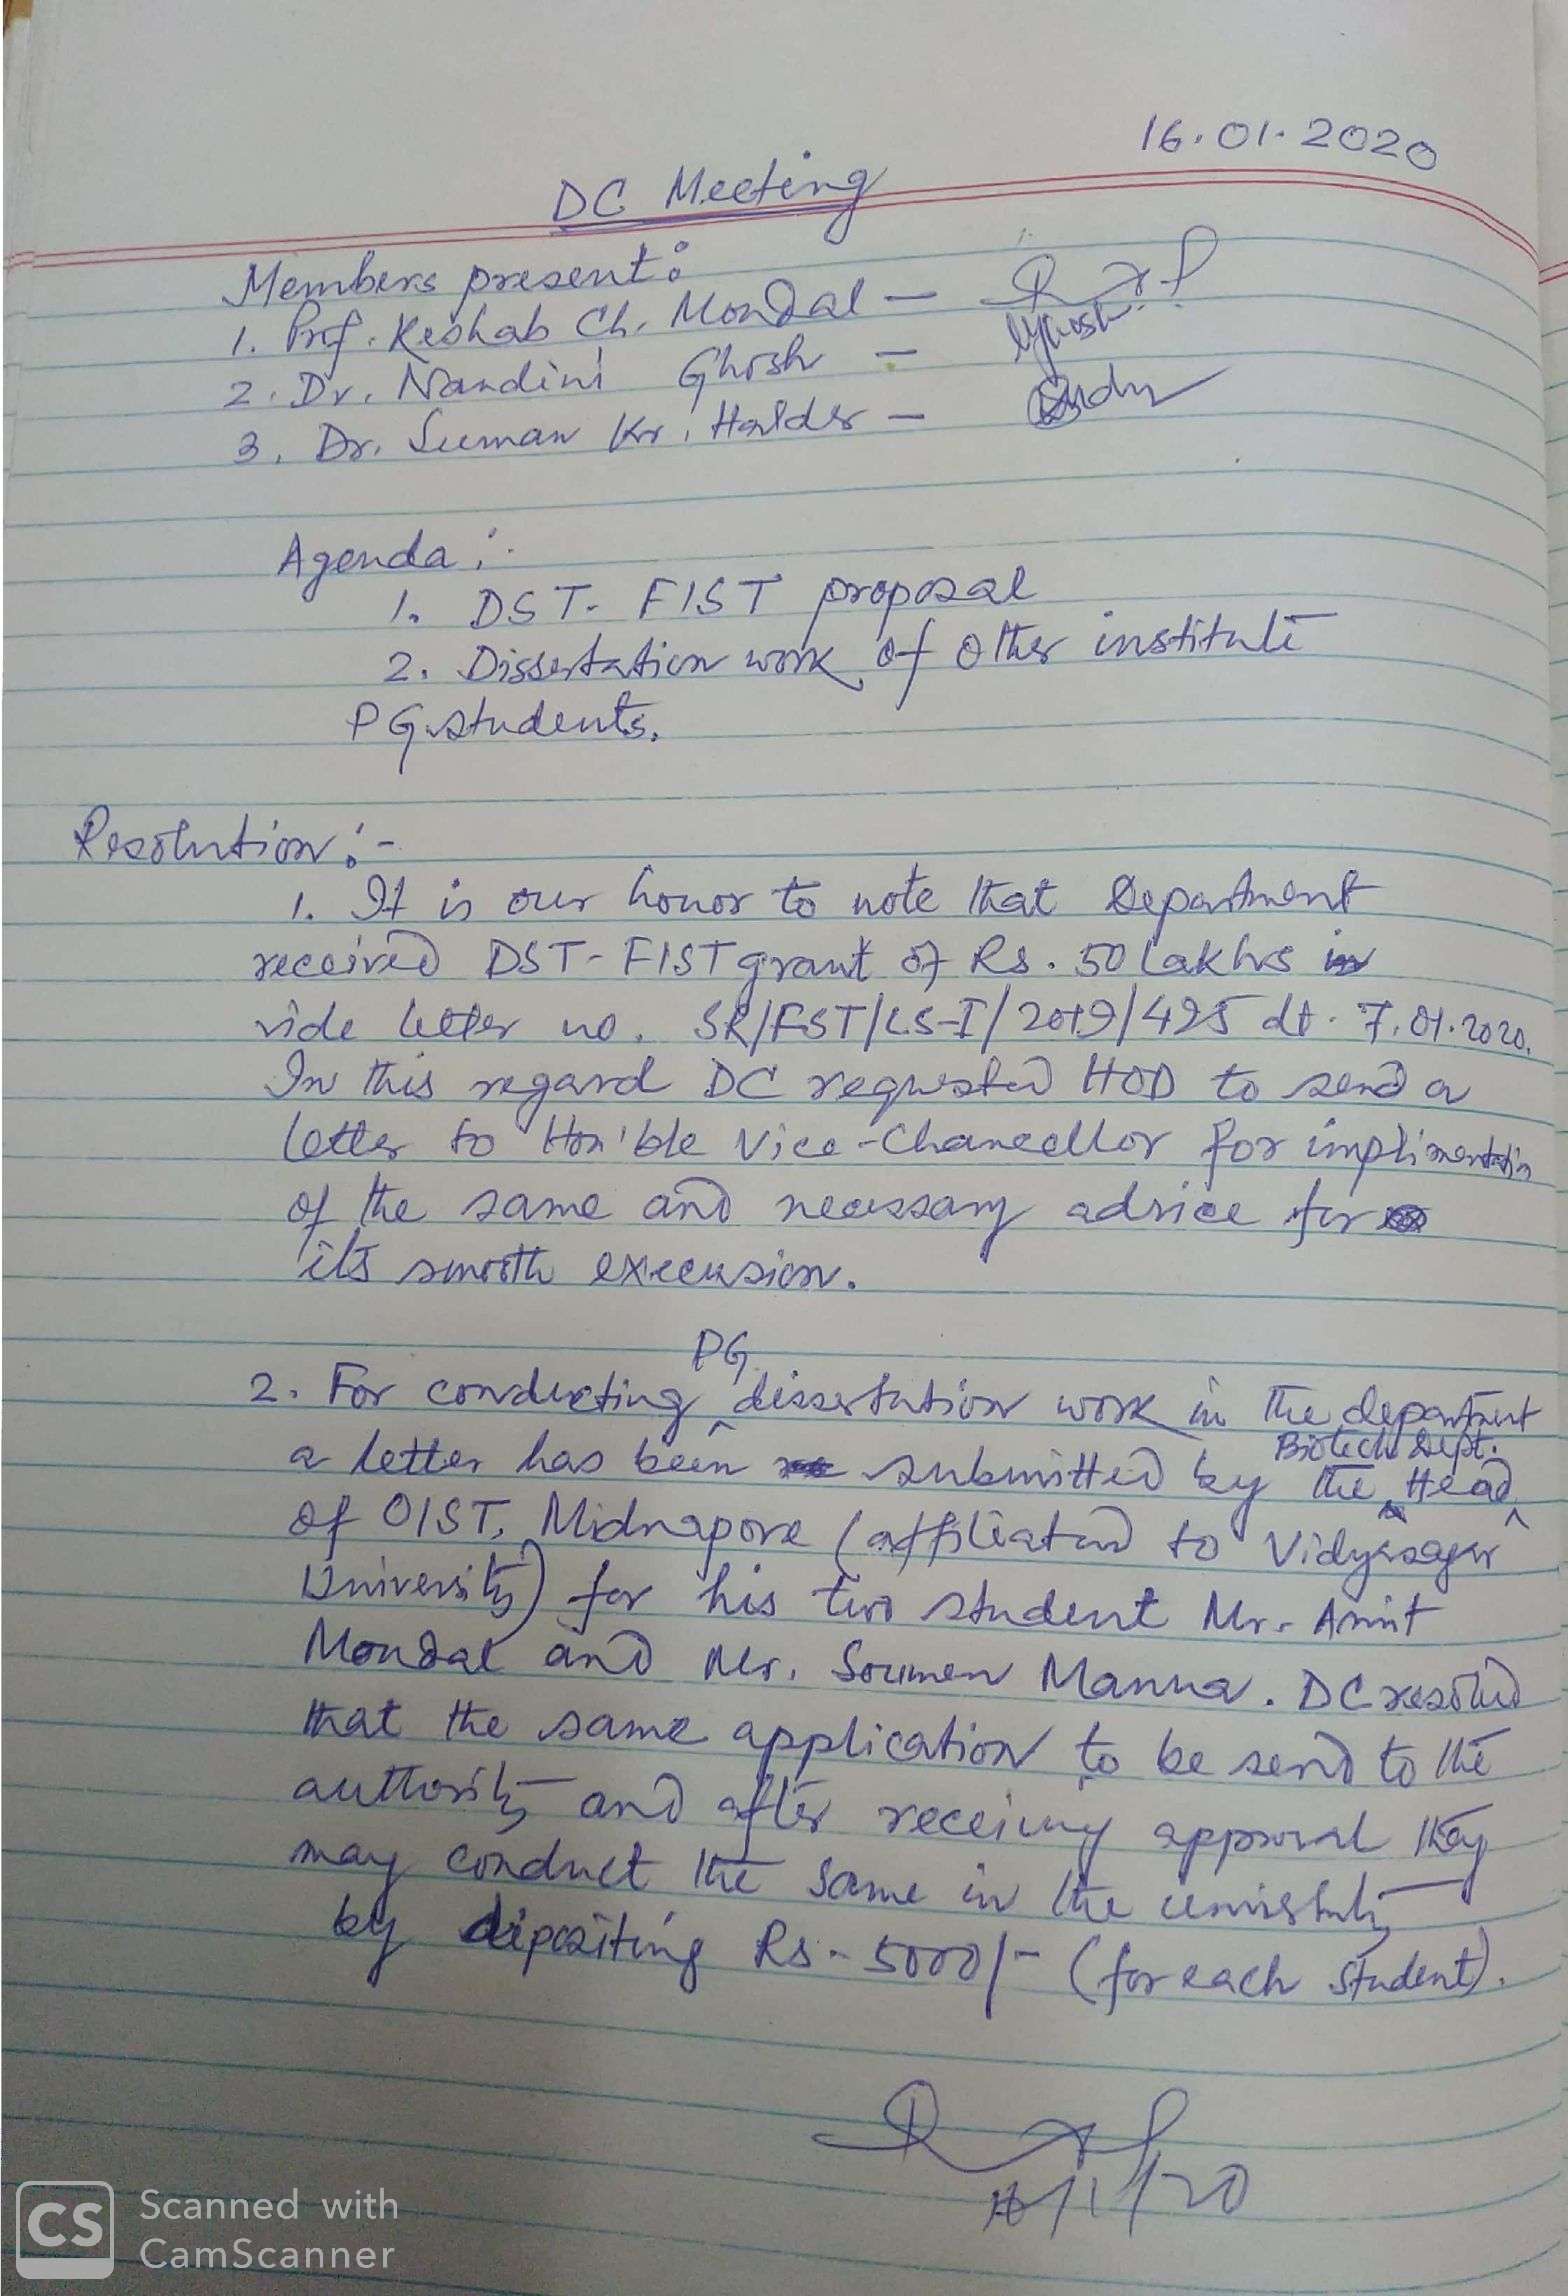 16.01.2020
DC Meeting
Members present:
1. Prof. Keshab Ch. Mondal –
2. Dr. Nandini Ghosh –
3. Dr. Suman Kr. Halder –
Agenda:
1. DST-FIST proposal
2. Dissertation work of other institute
PG students.
Resolution:-
1. It is our honor to note that Department
received DST-FIST grant of Rs. 50 Lakhs
vide letter no. SR/FST/LS-I/2019/495 dt. 7.01.2020.
In this regard DC requested HOD to send a
letter to Hon'ble Vice-Chancellor for implimentation
of the same and necessary advice for
its smooth execusion.
PG
2. For conducting dissertation work in the department
Biotech Dept.
a letter has been submitted by the Head
of OIST, Midnapore (affiliated to Vidyasagar
University) for his two student Mr. Amit
Mondal and Mr. Soumen Manna. DC resolved
that the same application to be send to the
authority and after receiving approval they
may conduct the same in the university
by depositing Rs. 5000/- (for each student).
16/1/20
CS Scanned with
CamScanner